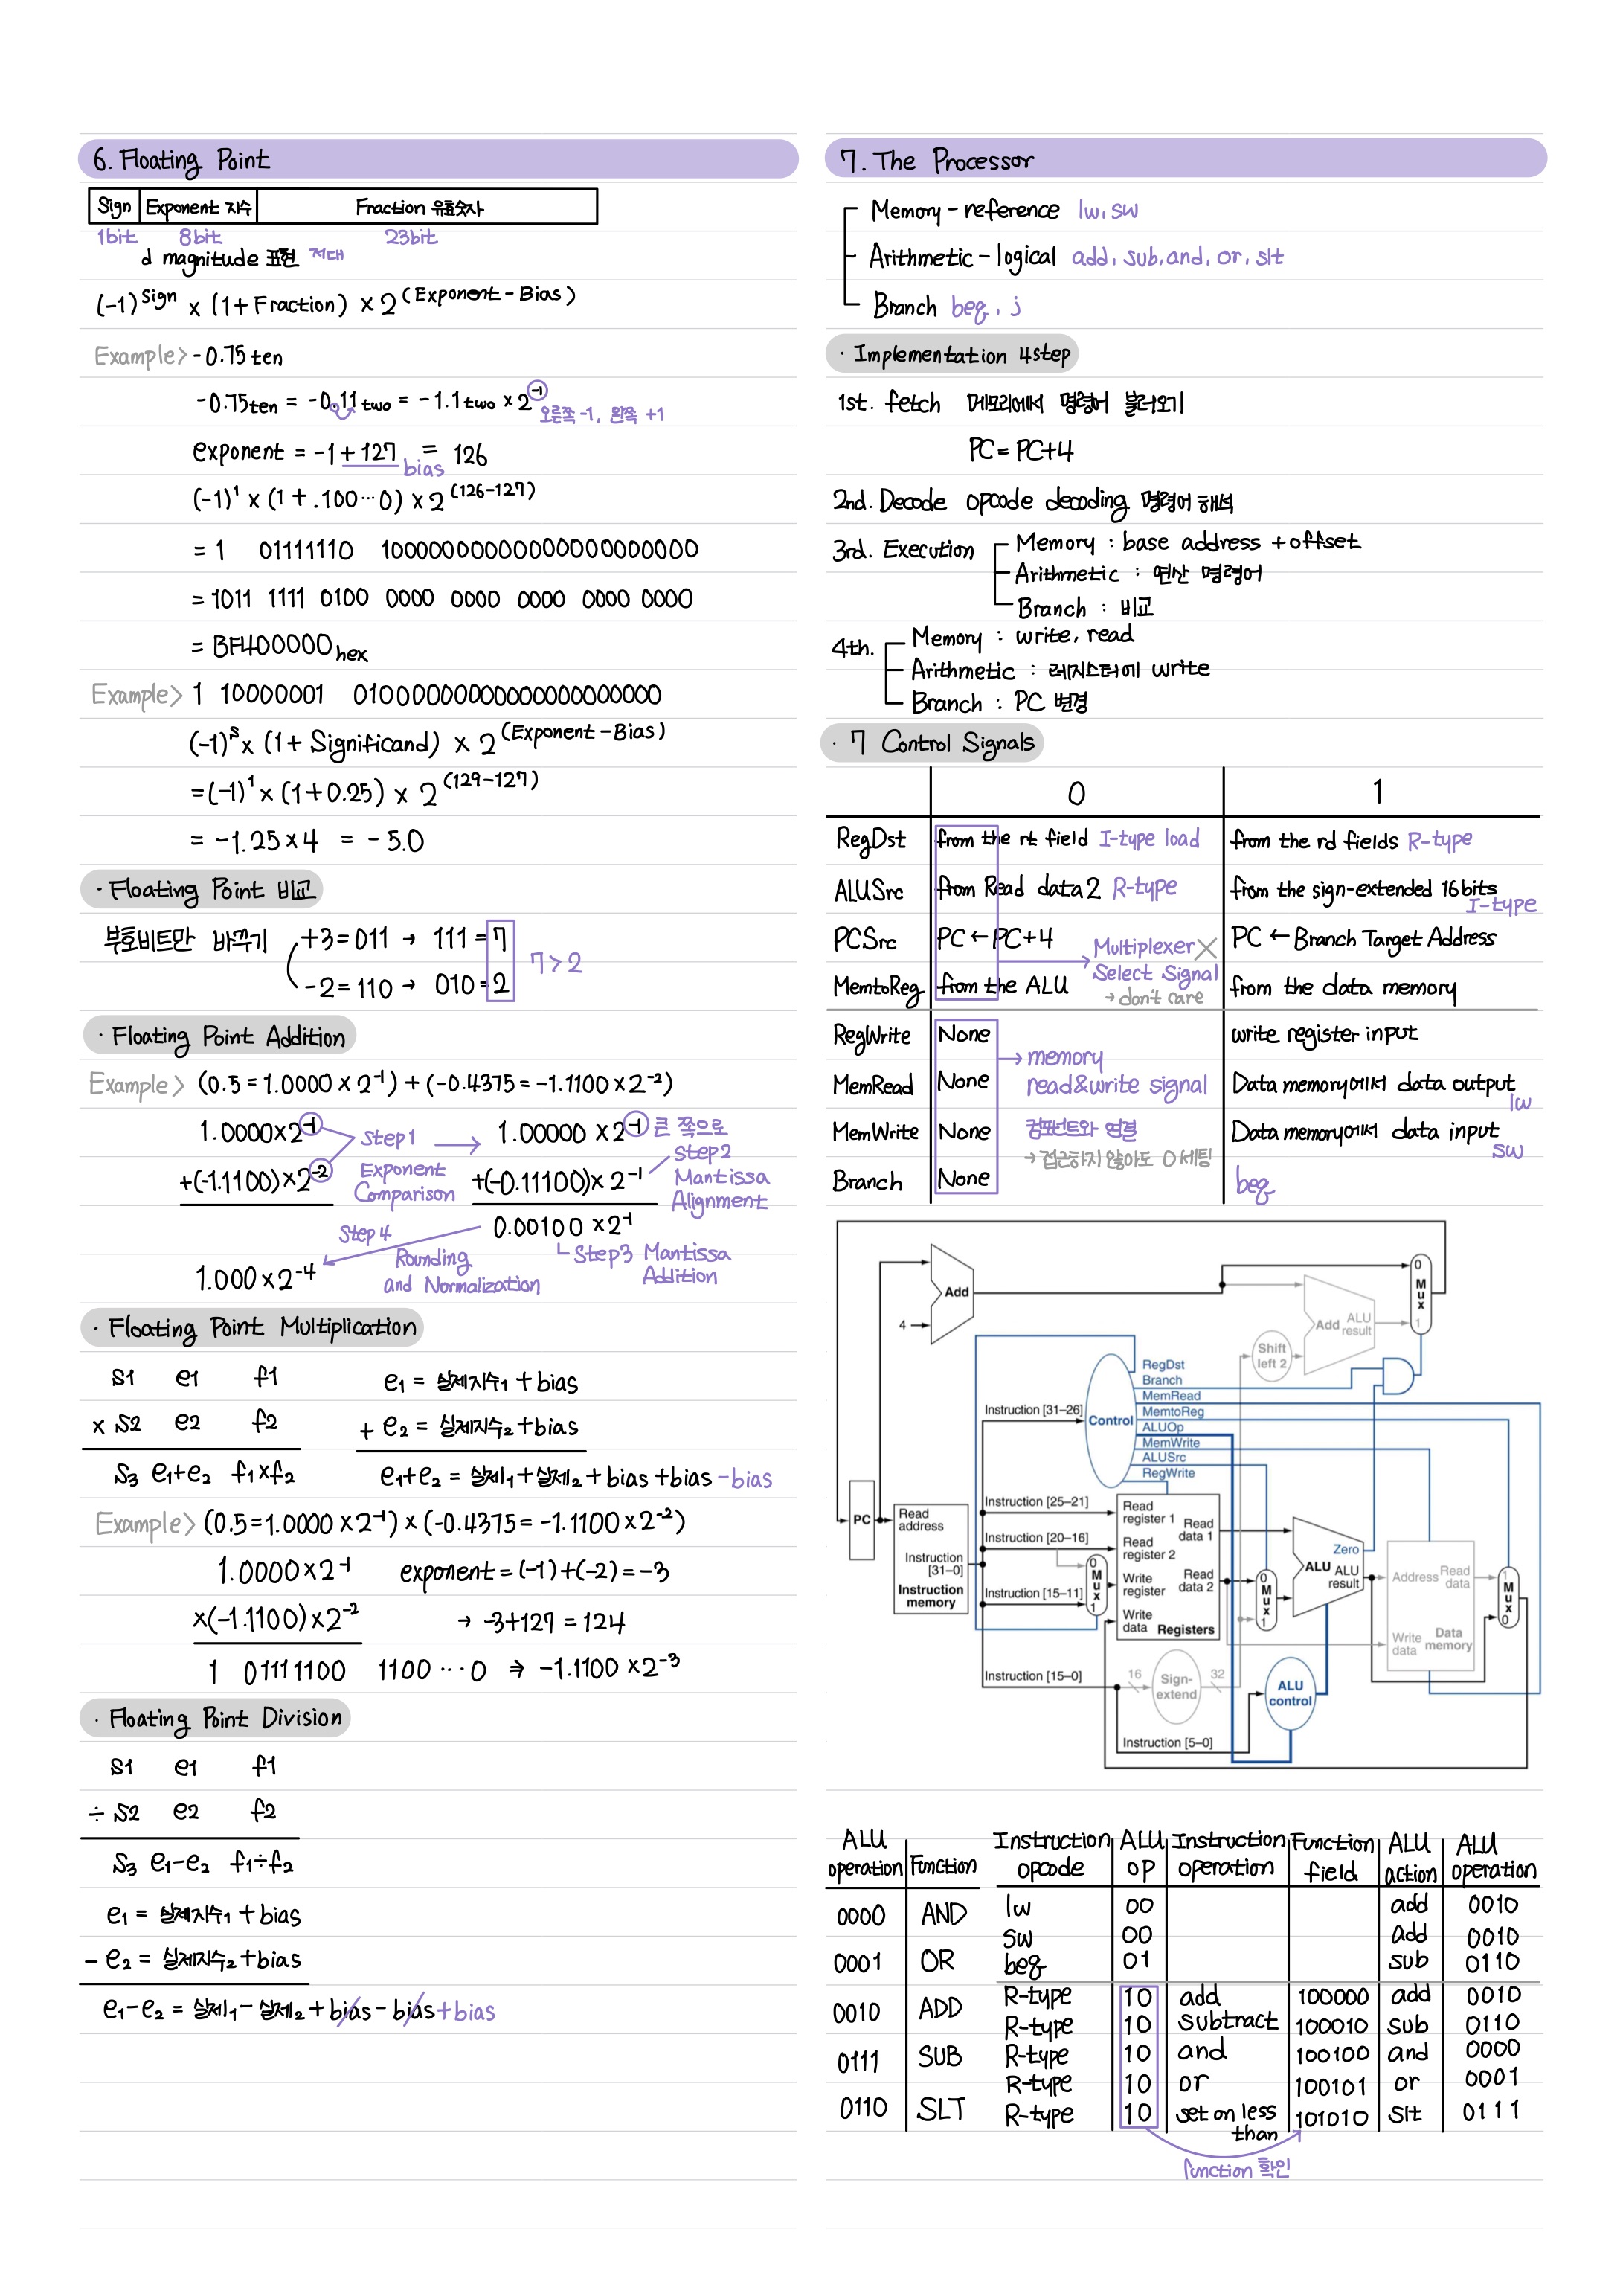 6. Floating Point
Sign Exponent 지수 Fraction 유효숫자
1bit 8bit 23bit
d magnitude 표현 저대
(-1)^Sign × (1+Fraction) × 2^(Exponent-Bias)
Example> -0.75 ten
-0.75ten = -0.11two = -1.1two × 2^-1
오른쪽 -1, 왼쪽 +1
exponent = -1 + 127 = 126
bias
(-1)^1 × (1 + .100…0) × 2^(126-127)
= 1 01111110 10000000000000000000000
= 1011 1111 0100 0000 0000 0000 0000 0000
= BF400000 hex
Example> 1 10000001 01000000000000000000000
(-1)^s × (1 + Significand) × 2^(Exponent-Bias)
= (-1)^1 × (1+0.25) × 2^(129-127)
= -1.25 × 4 = -5.0
· Floating Point 비교
부호비트만 바꾸기 +3 = 011 → 111 = 7
-2 = 110 → 010 = 2
7 > 2
· Floating Point Addition
Example> (0.5 = 1.0000 × 2^-1) + (-0.4375 = -1.1100 × 2^-2)
1.0000×2^-1 Step1 → 1.00000 × 2^-1 큰 쪽으로
+(-1.1100)×2^-2 Exponent Comparison +(-0.11100)× 2^-1 Step2 Mantissa Alignment
0.00100 × 2^-1
Step3 Mantissa Addition
Step4 Rounding and Normalization
1.000 × 2^-4
· Floating Point Multiplication
s1 e1 f1 e1 = 실제지수1 + bias
× s2 e2 f2 + e2 = 실제지수2 + bias
s3 e1+e2 f1×f2 e1+e2 = 실제1+실제2+bias+bias-bias
Example> (0.5=1.0000 × 2^-1) × (-0.4375= -1.1100 × 2^-2)
1.0000×2^-1 exponent = (-1)+(-2) = -3
×(-1.1100)×2^-2 → -3+127 = 124
1 01111100 1100 … 0 ⇒ -1.1100 × 2^-3
· Floating Point Division
s1 e1 f1
÷ s2 e2 f2
s3 e1-e2 f1÷f2
e1 = 실제지수1 + bias
- e2 = 실제지수2 + bias
e1-e2 = 실제1 - 실제2 + bias - bias + bias
7. The Processor
Memory-reference lw, sw
Arithmetic-logical add, sub, and, or, slt
Branch beq, j
· Implementation 4step
1st. fetch 메모리에서 명령어 불러오기
PC = PC+4
2nd. Decode opcode decoding 명령어 해석
3rd. Execution Memory : base address + offset
Arithmetic : 연산 명령어
Branch : 비교
4th. Memory : write, read
Arithmetic : 레지스터에 write
Branch : PC 변경
· 7 Control Signals
0 1
RegDst from the rt field I-type load from the rd fields R-type
ALUSrc from Read data2 R-type from the sign-extended 16bits I-type
PCSrc PC ← PC+4 PC ← Branch Target Address
MemtoReg from the ALU from the data memory
Multiplexer X
Select Signal
→ don't care
RegWrite None write register input
MemRead None Data memory에서 data output lw
MemWrite None Data memory에서 data input sw
Branch None beq
→ memory
read&write signal
컴포넌트와 연결
→ 접근하지 않아도 0 세팅
Add
4
Add ALU result
0 Mux 1
Shift left 2
RegDst
Branch
MemRead
MemtoReg
ALUOp
MemWrite
ALUSrc
RegWrite
Control
Instruction [31–26]
Instruction [25–21]
Instruction [20–16]
Instruction [15–11]
Instruction [15–0]
Instruction [5–0]
PC
Read address
Instruction [31–0]
Instruction memory
0 Mux 1
Read register 1
Read register 2
Write register
Write data
Read data 1
Read data 2
Registers
0 Mux 1
Zero
ALU ALU result
Address Read data
Write data
Data memory
1 Mux 0
16 Sign-extend 32
ALU control
ALU operation Function
0000 AND
0001 OR
0010 ADD
0111 SUB
0110 SLT
Instruction opcode ALU op Instruction operation Function field ALU action ALU operation
lw 00 add 0010
sw 00 add 0010
beq 01 sub 0110
R-type 10 add 100000 add 0010
R-type 10 subtract 100010 sub 0110
R-type 10 and 100100 and 0000
R-type 10 or 100101 or 0001
R-type 10 set on less than 101010 slt 0111
function 확인